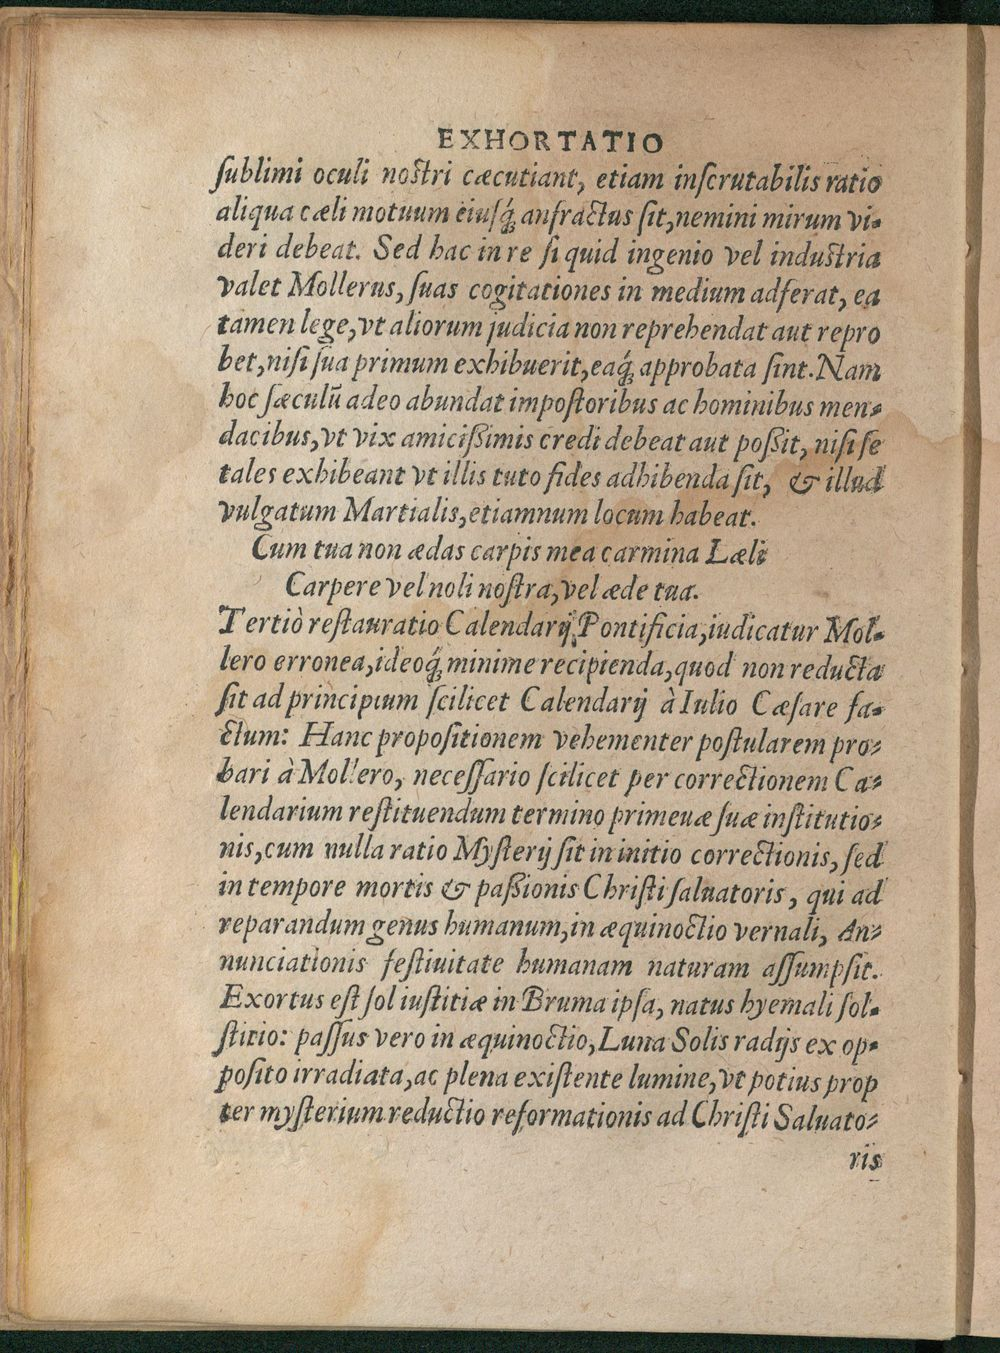 EXHORTATIO
sublimi oculi nostri cæcutiant, etiam inscrutabilis ratio
aliqua cæli motuum eiusq́; anfractus sit, nemini mirum vi-
deri debeat. Sed hac in re si quid ingenio vel industria
valet Mollerus, suas cogitationes in medium adferat, ea
tamen lege, vt aliorum judicia non reprehendat aut repro
bet, nisi sua primum exhibuerit, eaq́; approbata sint. Nam
hoc sæculū adeo abundat impostoribus ac hominibus men-
dacibus, vt vix amicißimis credi debeat aut poßit, nisi se
tales exhibeant vt illis tuto fides adhibenda sit, & illud
vulgatum Martialis, etiamnum locum habeat.
Cum tua non ædas carpis mea carmina Læli
Carpere vel noli nostra, vel æde tua.
Tertiò restauratio Calendarij Pontificia, iudicatur Mol-
lero erronea, ideoq́; minime recipienda, quod non reducta
sit ad principium scilicet Calendarij à Iulio Cæsare fa-
ctum: Hanc propositionem vehementer postularem pro-
bari à Mollero, necessario scilicet per correctionem Ca-
lendarium restituendum termino primeuæ suæ institutio-
nis, cum nulla ratio Mysterij sit in initio correctionis, sed
in tempore mortis & paßionis Christi saluatoris, qui ad
reparandum genus humanum, in æquinoctio vernali, An-
nunciationis festiuitate humanam naturam assumpsit.
Exortus est sol iustitiæ in Bruma ipsa, natus hyemali sol-
stitio: passus vero in æquinoctio, Luna Solis radijs ex op-
posito irradiata, ac plena existente lumine, vt potius prop
ter mysterium reductio reformationis ad Christi Saluato-
ris